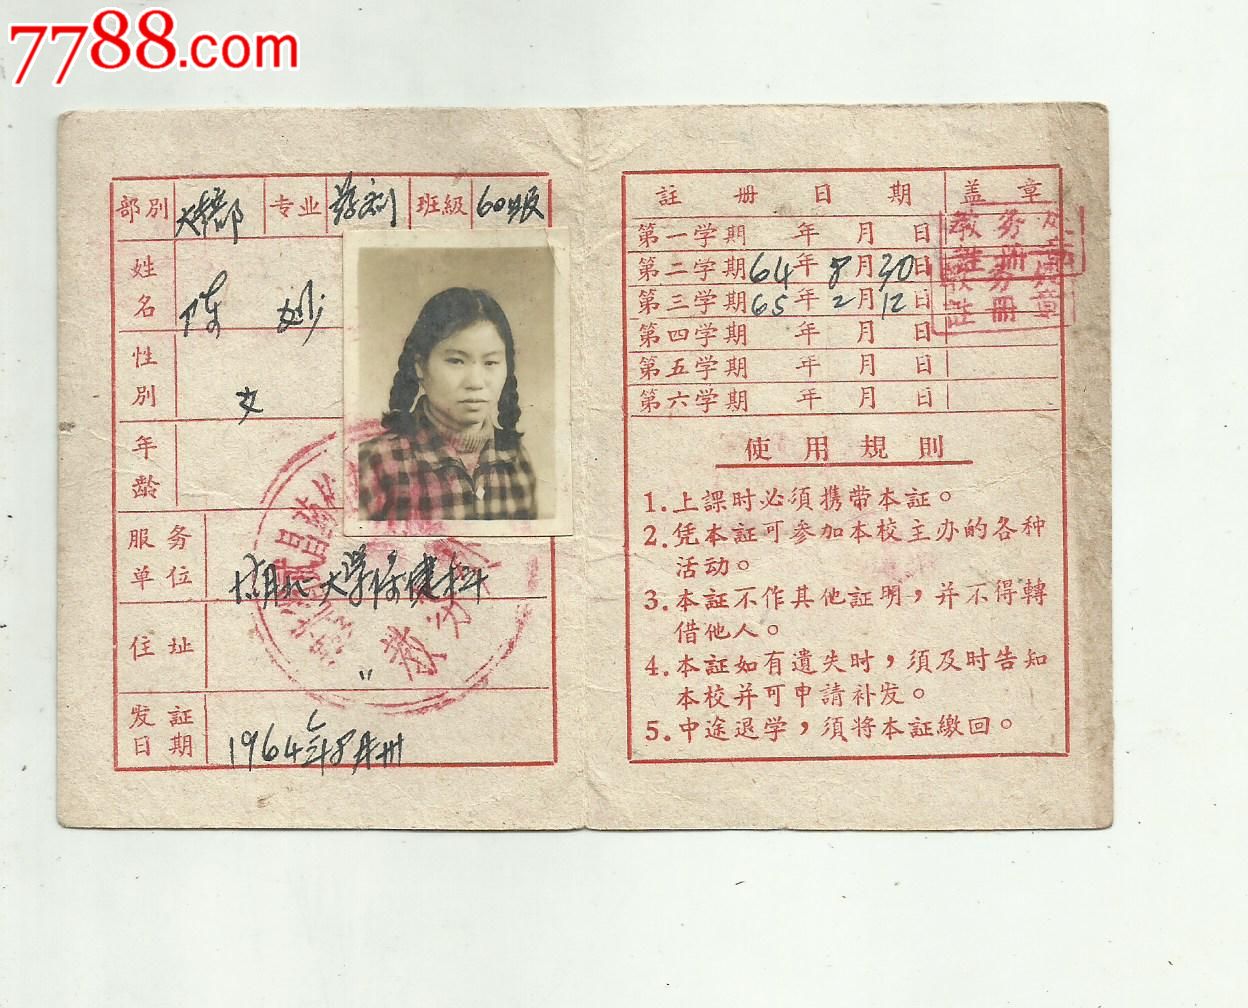 7788.com
部别 大楼部 专业 药剂 班级 60级
姓名 陈
性别 女
年龄
服务单位 湖北大学保健科
住址 〃
发証日期 1964年8月卅
註册日期 盖章
第一学期 年 月 日
第二学期 64年8月30日
第三学期 65年2月12日
第四学期 年 月 日
第五学期 年 月 日
第六学期 年 月 日
教务处
註册章
教务处
註册章
使用規則
1. 上課时必須携带本証。
2. 凭本証可参加本校主办的各种
活动。
3. 本証不作其他証明，并不得轉
借他人。
4. 本証如有遺失时，須及时告知
本校并可申請补发。
5. 中途退学，須将本証繳回。